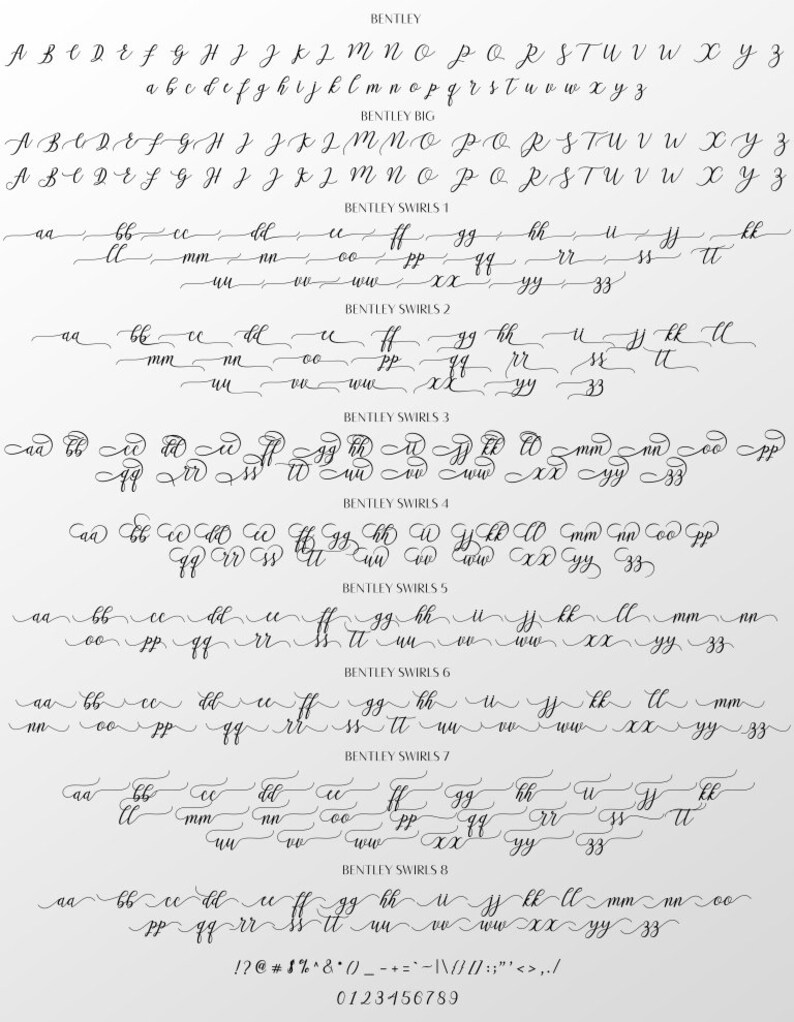 BENTLEY
A B C D E F G H I J K L M N O P Q R S T U V W X Y Z
a b c d e f g h i j k l m n o p q r s t u v w x y z
BENTLEY BIG
A B C D E F G H I J K L M N O P Q R S T U V W X Y Z
A B C D E F G H I J K L M N O P Q R S T U V W X Y Z
BENTLEY SWIRLS 1
aa bb cc dd ee ff gg hh ii jj kk
ll mm nn oo pp qq rr ss tt
uu vv ww xx yy zz
BENTLEY SWIRLS 2
aa bb cc dd ee ff gg hh ii jj kk ll
mm nn oo pp qq rr ss tt
uu vv ww xx yy zz
BENTLEY SWIRLS 3
aa bb cc dd ee ff gg hh ii jj kk ll mm nn oo pp
qq rr ss tt uu vv ww xx yy zz
BENTLEY SWIRLS 4
aa bb cc dd ee ff gg hh ii jj kk ll mm nn oo pp
qq rr ss tt uu vv ww xx yy zz
BENTLEY SWIRLS 5
aa bb cc dd ee ff gg hh ii jj kk ll mm nn
oo pp qq rr ss tt uu vv ww xx yy zz
BENTLEY SWIRLS 6
aa bb cc dd ee ff gg hh ii jj kk ll mm
nn oo pp qq rr ss tt uu vv ww xx yy zz
BENTLEY SWIRLS 7
aa bb cc dd ee ff gg hh ii jj kk
ll mm nn oo pp qq rr ss tt
uu vv ww xx yy zz
BENTLEY SWIRLS 8
aa bb cc dd ee ff gg hh ii jj kk ll mm nn oo
pp qq rr ss tt uu vv ww xx yy zz
!?@#$%^&*()_-+=`~|\{}[]:;"'<>,./
0123456789